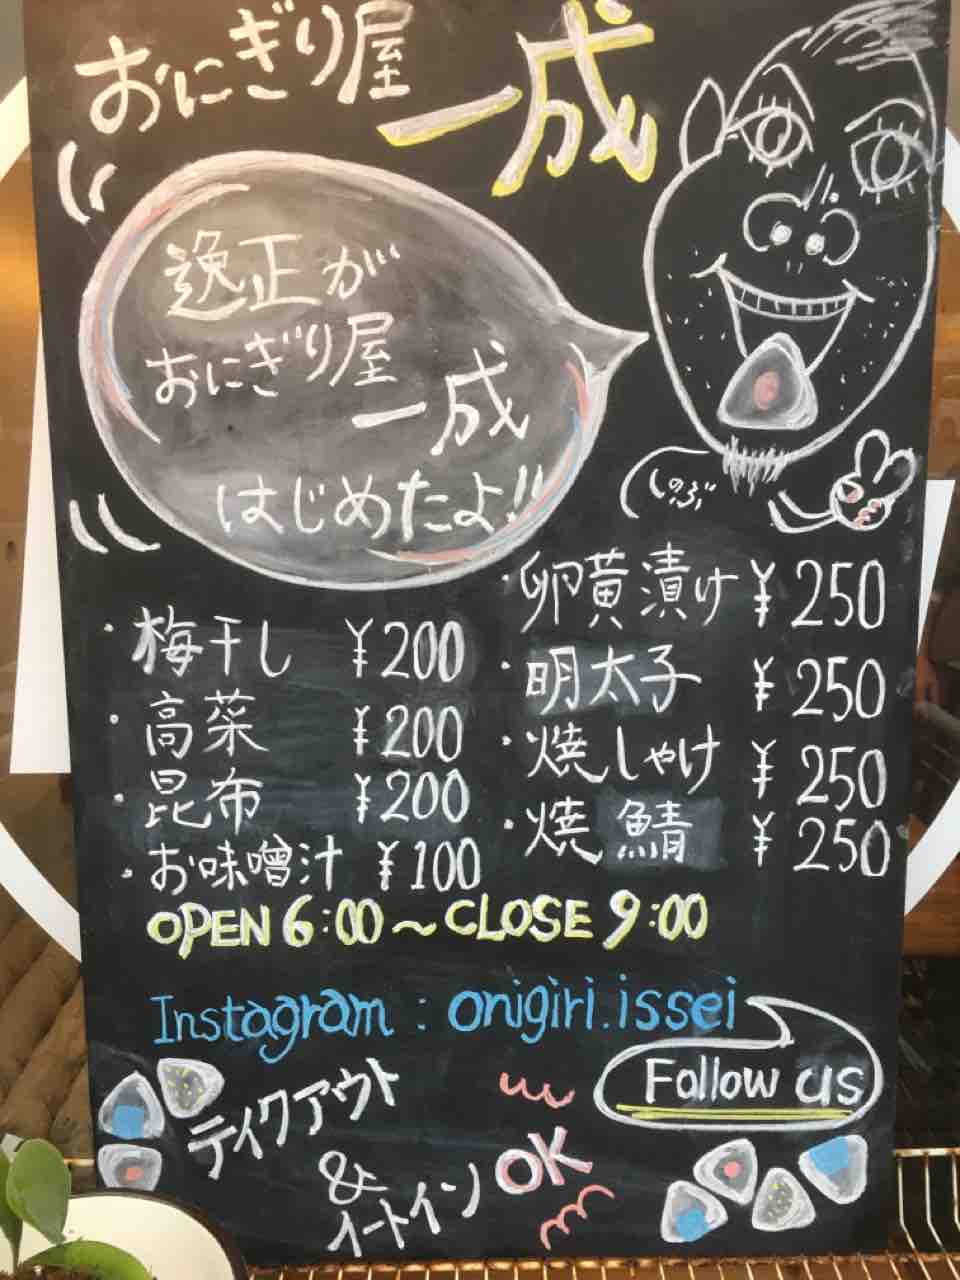 おにぎり屋
一成
逸正が
おにぎり屋
一成
はじめたよ!!
しのぶ
・梅干し ¥200
・高菜 ¥200
・昆布 ¥200
・お味噌汁 ¥100
・卵黄漬け ¥250
・明太子 ¥250
・焼しゃけ ¥250
・焼鯖 ¥250
OPEN 6:00~CLOSE 9:00
Instagram : onigiri.issei
Follow us
テイクアウト
&
イートイン OK